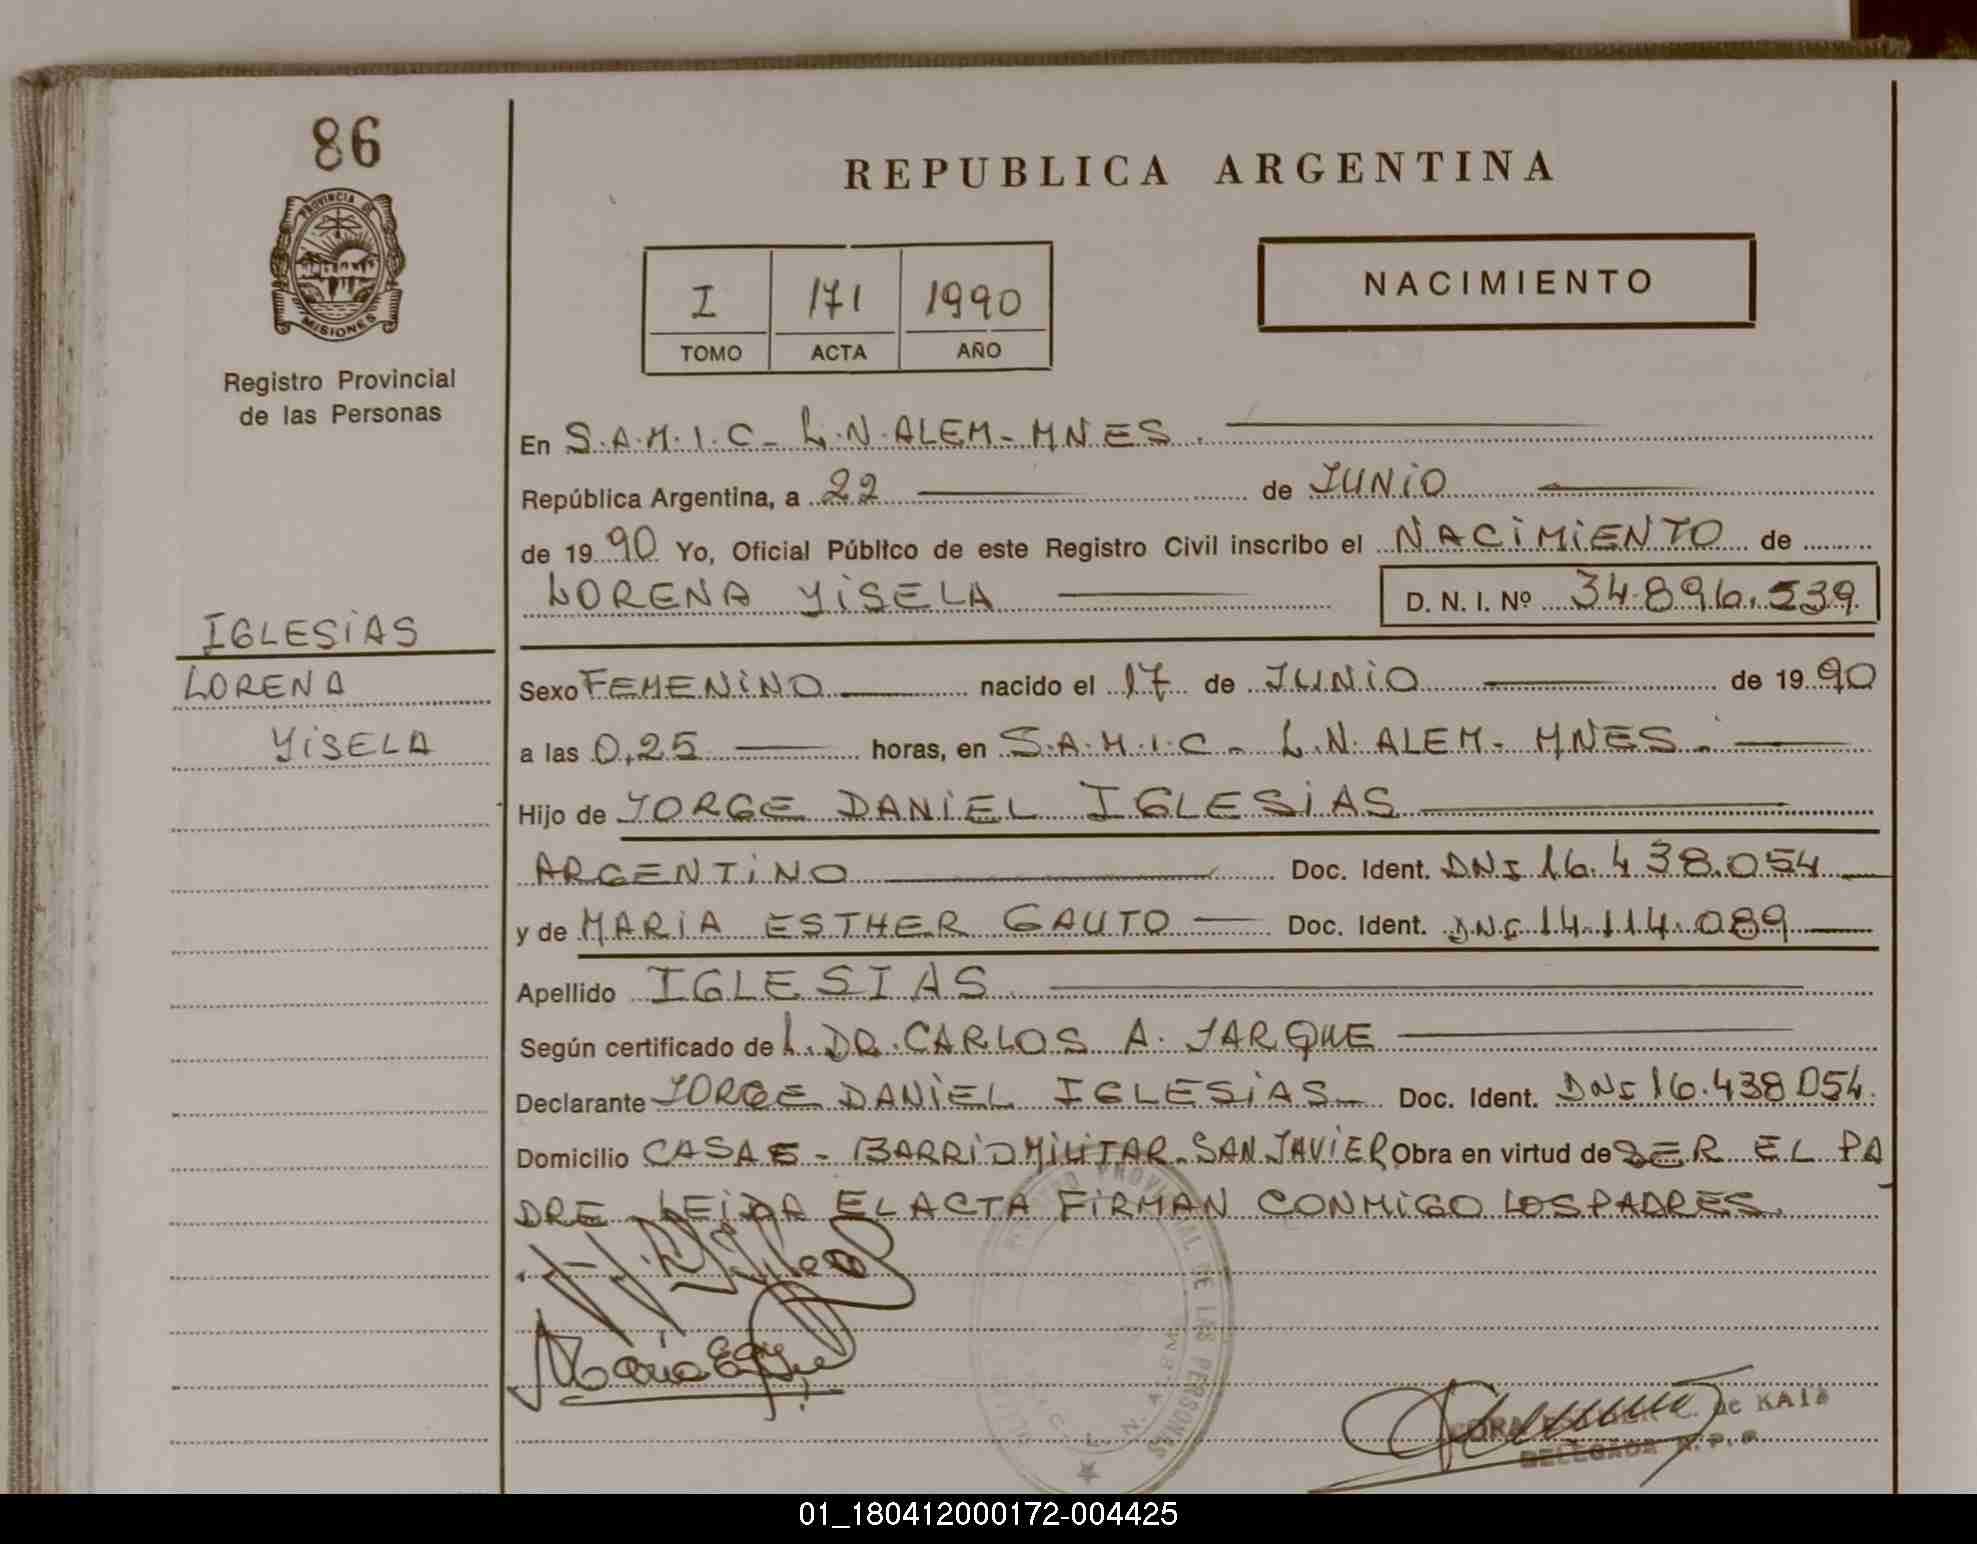 86
REPUBLICA ARGENTINA
PROVINCIA DE
MISIONES
Registro Provincial
de las Personas
I 171 1990
TOMO ACTA AÑO
NACIMIENTO
En S.A.M.I.C - L.N.ALEM - MNES.
República Argentina, a 22 de JUNIO
de 1990 Yo, Oficial Público de este Registro Civil inscribo el NACIMIENTO de
LORENA YISELA D. N. I. Nº 34.896.539
IGLESIAS
LORENA
YISELA
Sexo FEMENINO nacido el 17 de JUNIO de 1990
a las 0,25 horas, en S.A.M.I.C - L.N. ALEM - MNES.
Hijo de JORGE DANIEL IGLESIAS
ARGENTINO Doc. Ident. DNI 16.438.054
y de MARIA ESTHER GAUTO Doc. Ident. DNI 14.114.089
Apellido IGLESIAS
Según certificado de L. DR. CARLOS A. JARQUE
Declarante JORGE DANIEL IGLESIAS Doc. Ident. DNI 16.438.054.
Domicilio CASA 5 - BARRIO MILITAR - SAN JAVIER Obra en virtud de SER EL PA
DRE LEIDA EL ACTA FIRMAN CONMIGO LOS PADRES.
PROVINCIAL DE LAS PERSONAS
L. N. ALEM
DELEGADA R. P. P.
01_180412000172-004425